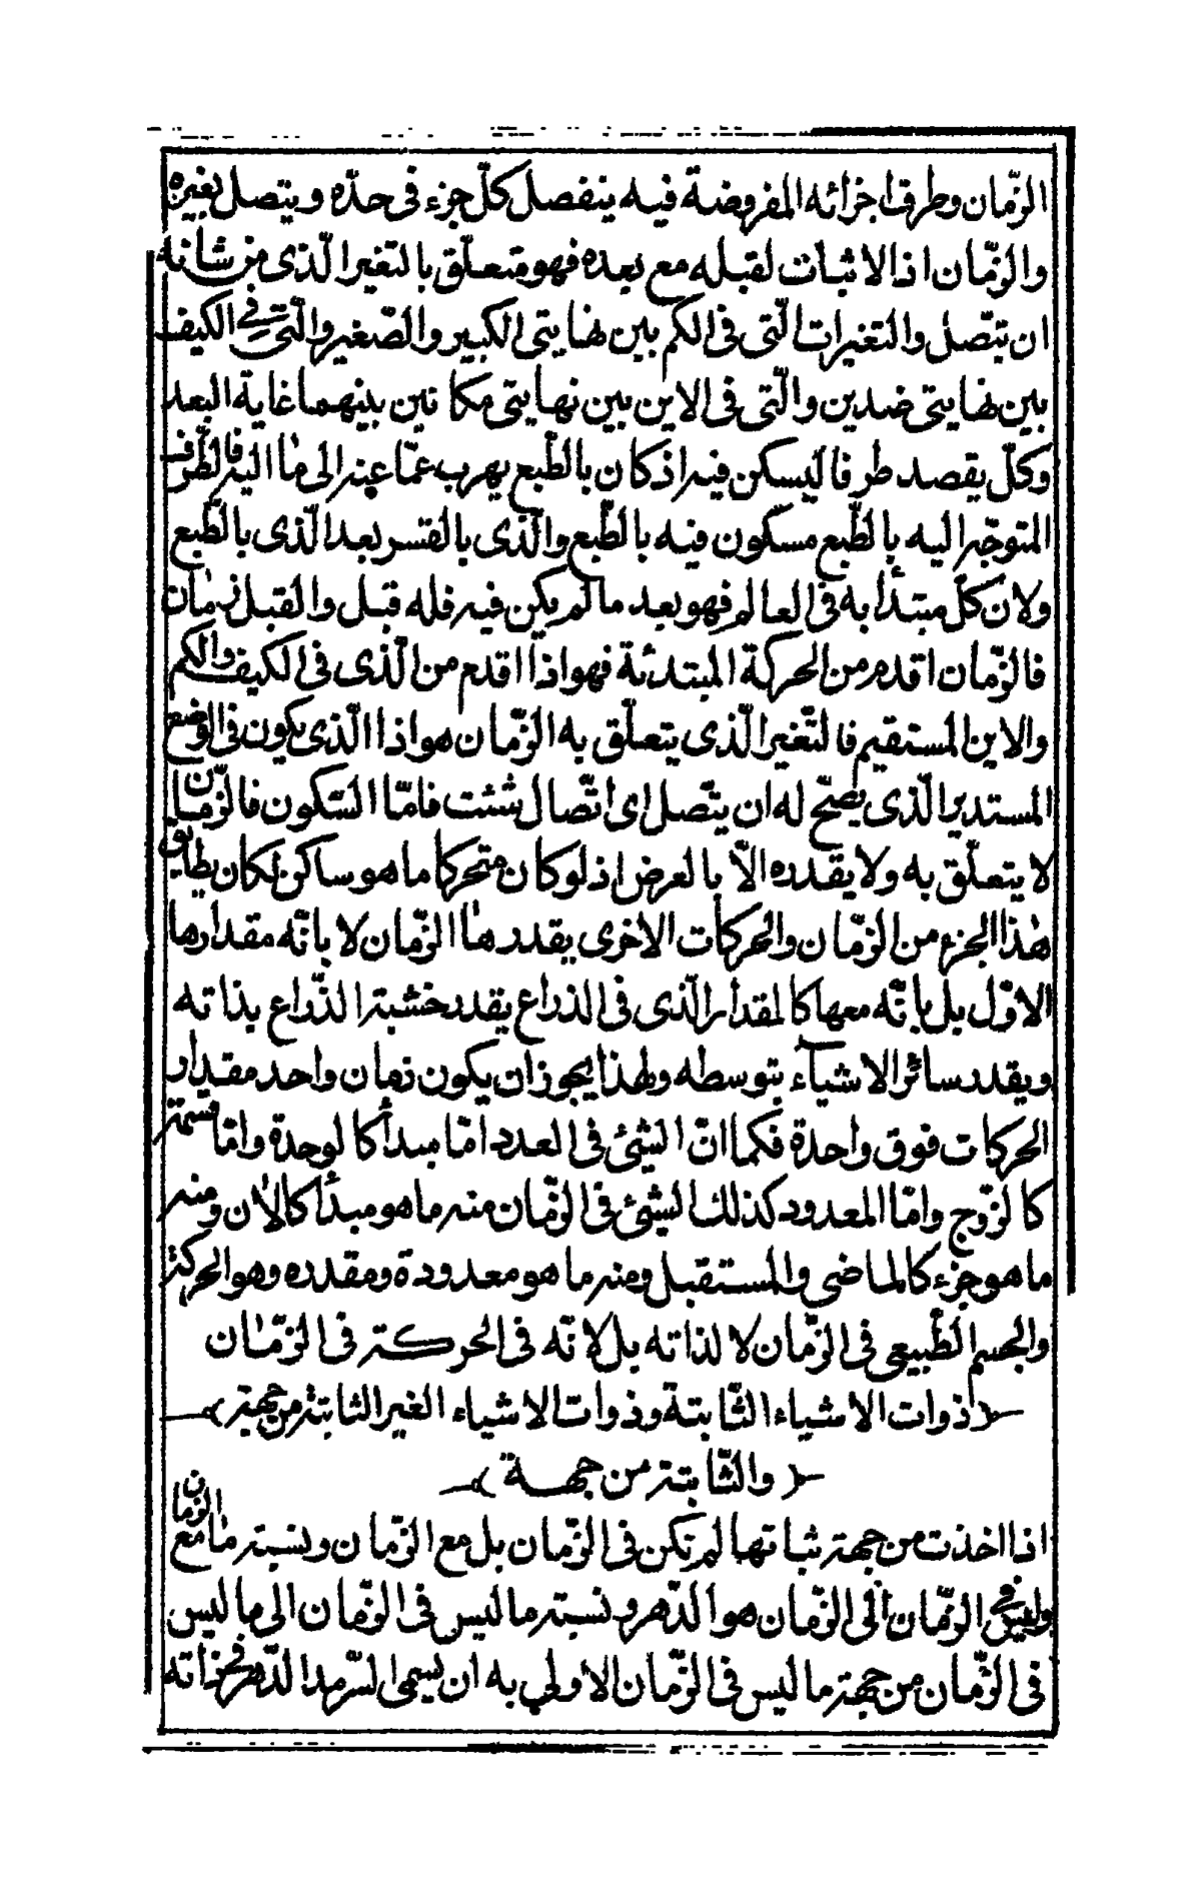 الزّمان وطرف اجزائه المفروضة فيه ينفصل كلّ جزء فى حدّه ويتصل بغيره
والزّمان اذ الاثبات لقبله مع بعده فهو متعلّق بالتغير الّذى من شانه
ان يتّصل والتغيرات الّتى فى الكم بين نهايتى الكبير والصّغير والّتى فى الكيف
بين نهايتى ضدين والّتى فى الاين بين نهايتى مكانين بينهما غاية البعد
وكلّ يقصد طرفا ليسكن فيه اذ كان بالطّبع يهرب عمّا عنه الى ما اليه فالطّرف
المتوجّه اليه بالطّبع مسكون فيه بالطّبع والّذى بالقسر بعد الّذى بالطّبع
ولان كلّ مبتدأ به فى العالم فهو بعد ما لم يكن فيه فله قبل والقبل زمان
فالزّمان اقدم من الحركة المبتدئة فهو اذا اقدم من الّذى فى الكيف والكم
والاين المستقيم فالتّغير الّذى يتعلّق به الزّمان هو اذا الّذى يكون فى الوضع
المستدير الّذى يصحّ له ان يتّصل اى اتّصال شئت فامّا السّكون فالزّمان
لا يتعلّق به ولا يقدره الاّ بالعرض اذ لو كان متحركا ما هو ساكن لكان يطابق
هذا الجزء من الزّمان والحركات الاخرى يقدرها الزّمان لا بانّه مقدارها
الاوّل بل بانّه معها كالمقدار الّذى فى الذراع يقدر خشبة الذّراع بذاته
ويقدر سائر الاشيآء بتوسطه ولهذا يجوز ان يكون زمان واحد مقدار
الحركات فوق واحدة فكما انّ الشئ فى العدد امّا مبدأ كالوحدة وامّا قسمة
كالزّوج وامّا المعدود كذلك الشئ فى الزّمان منه ما هو مبدأ كالان ومنه
ما هو جزء كالماضى والمستقبل ومنه ما هو معدودة ومقدره وهو الحركة
والجسم الطّبيعى فى الزّمان لا لذاته بل لانّه فى الحركة فى الزّمان
﴿ذوات الاشياء الثّابتة وذوات الاشياء الغير الثابتة من جهة﴾
﴿والثّابتة من جهة﴾
اذا اخذت من جهة ثباتها لم تكن فى الزّمان بل مع الزّمان ونسبة ما مع الزمان
وليس فى الزّمان الى الزّمان هو الدّهر ونسبة ما ليس فى الزّمان الى ما ليس
فى الزّمان من جهة ما ليس فى الزّمان الاولى به ان يسمى السّرمد الدّهر فى ذاته